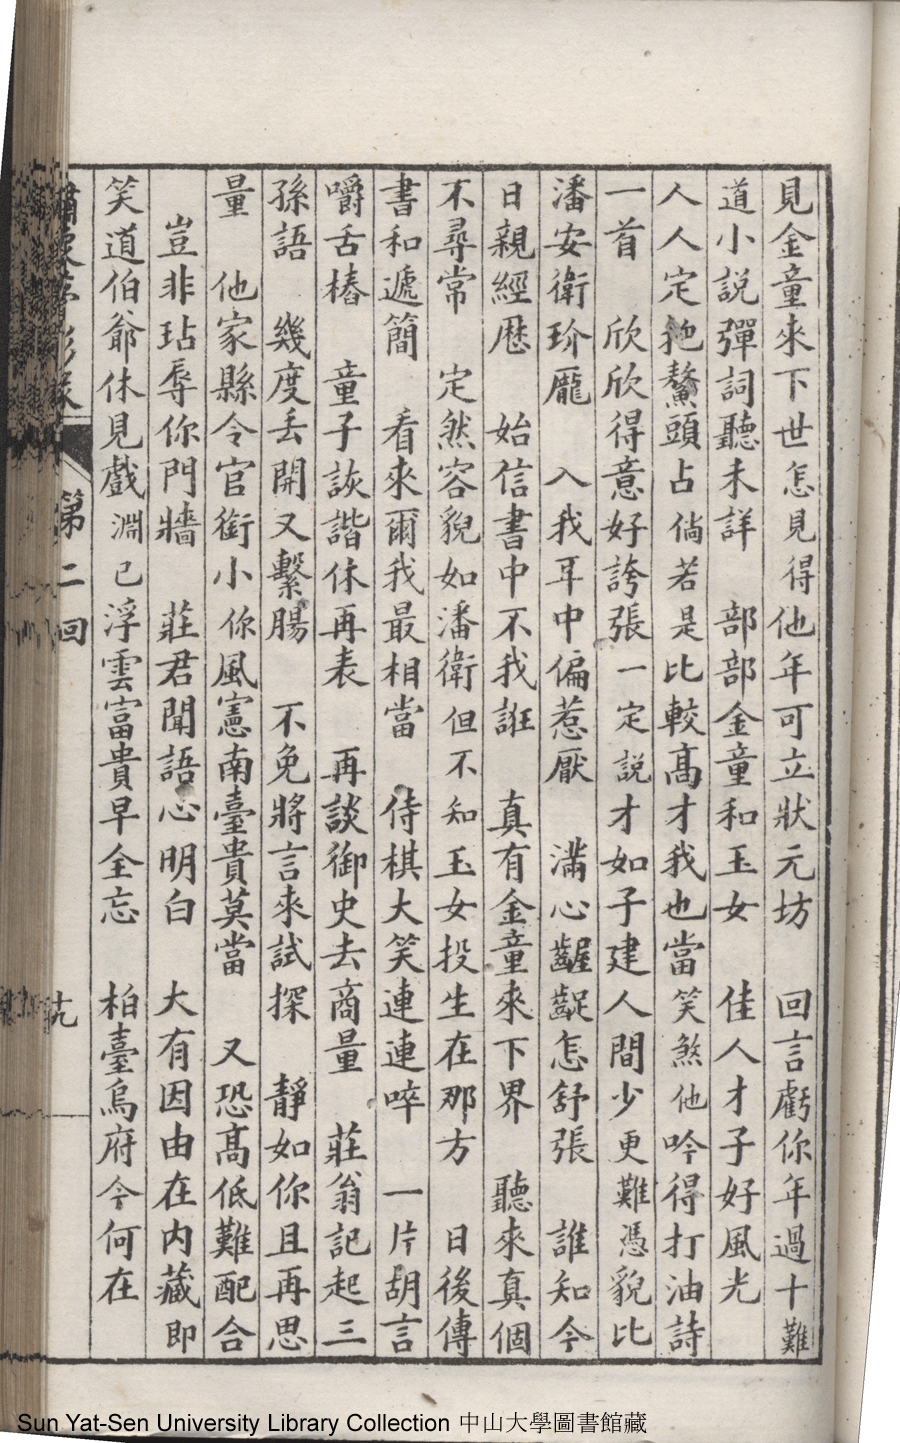 見金童來下世怎見得他年可立狀元坊　回言虧你年過十難
道小說彈詞聽未詳　部部金童和玉女　佳人才子好風光
人人定抱鰲頭占倘若是比較高才我也當笑煞他吟得打油詩
一首　欣欣得意好誇張一定說才如子建人間少更難憑貌比
潘安衛玠龐　入我耳中偏惹厭　滿心齷齪怎舒張　誰知今
日親經歷　始信書中不我誑　真有金童來下界　聽來真個
不尋常　定然容貌如潘衛但不知玉女投生在那方　日後傳
書和遞簡　看來爾我最相當　侍棋大笑連連啐　一片胡言
嚼舌樁　童子詼諧休再表　再談御史去商量　莊翁記起三
孫語　幾度丟開又繫腸　不免將言來試探　靜如你且再思
量　他家縣令官銜小你風憲南臺貴莫當　又恐高低難配合
豈非玷辱你門牆　莊君聞語心明白　大有因由在內藏即
笑道伯爺休見戲淵已浮雲富貴早全忘　柏臺烏府今何在
第二回
十九
Sun Yat-Sen University Library Collection 中山大學圖書館藏